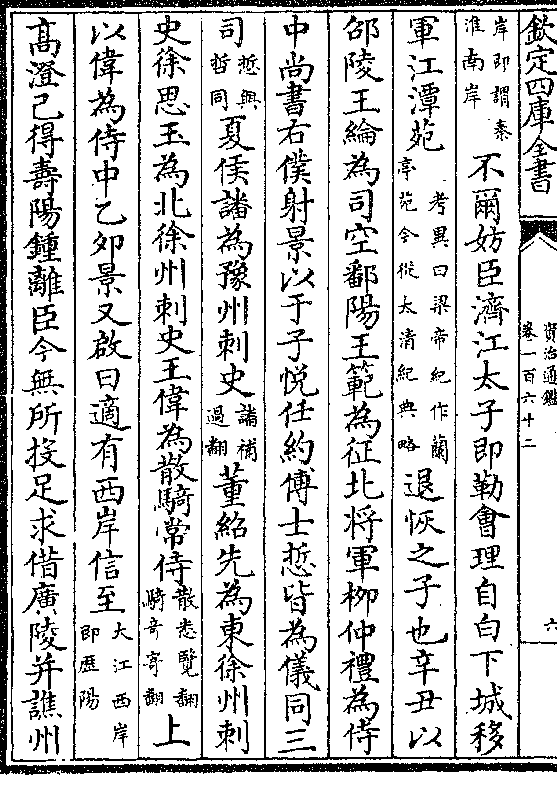 欽定四庫全書
資治通鑑
卷一百六十二
六
岸即謂秦
淮南岸
不爾妨臣濟江太子即勒會理自白下城移
軍江潭苑
考異曰梁帝紀作蘭
亭苑今從太清紀典略
退恢之子也辛丑以
邵陵王綸為司空鄱陽王範為征北將軍柳仲禮為侍
中尚書右僕射景以于子悦任約傅士悊皆為儀同三
司
悊與
哲同
夏侯譒為豫州刺史
譒補
過翻
董紹先為東徐州刺
史徐思玉為北徐州刺史王偉為散騎常侍
散悉覽翻
騎奇寄翻
上
以偉為侍中乙卯景又啟曰適有西岸信至
大江西岸
即歷陽
高澄已得壽陽鍾離臣今無所投足求借廣陵并譙州